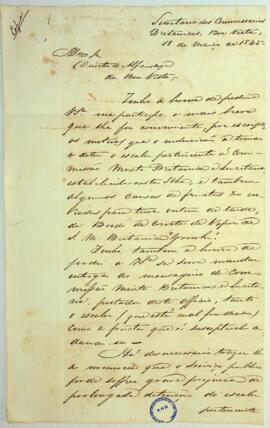 Copia
Secretaria dos Commissarios
Britanicos, Boa Vista,
18 de Março de 1845.
Illmo Sr
Director d'Alfandega
da Boa Vista.
Tenho a honra de pedir a
VSa me participe o mais breve
que lhe for conveniente, por escripto,
os motivos que o induzirão a tomar
e deter o escaler pertencente á Com-
missão Mixta Britanica e Lusitana
estabelecida nesta Ilha, e tambem
algumas caixas de fructas
de Bordo do de Vapor de
S. M. Britanica "Growler"
Tenho tambem a honra de
pedir a VSa se sirva mandar
entregar ao mensageiro da Com-
missão Mixta Britanica e Lusita-
na, portador deste officio, tanto
o escaler (que está mal fundeado)
como a fructa que é susceptivel a
He desnecessario trazer-lhe
á memoria que o Serviço publico
pode soffrer grave prejuizo da
prolongada detenção do escaler
pertencente